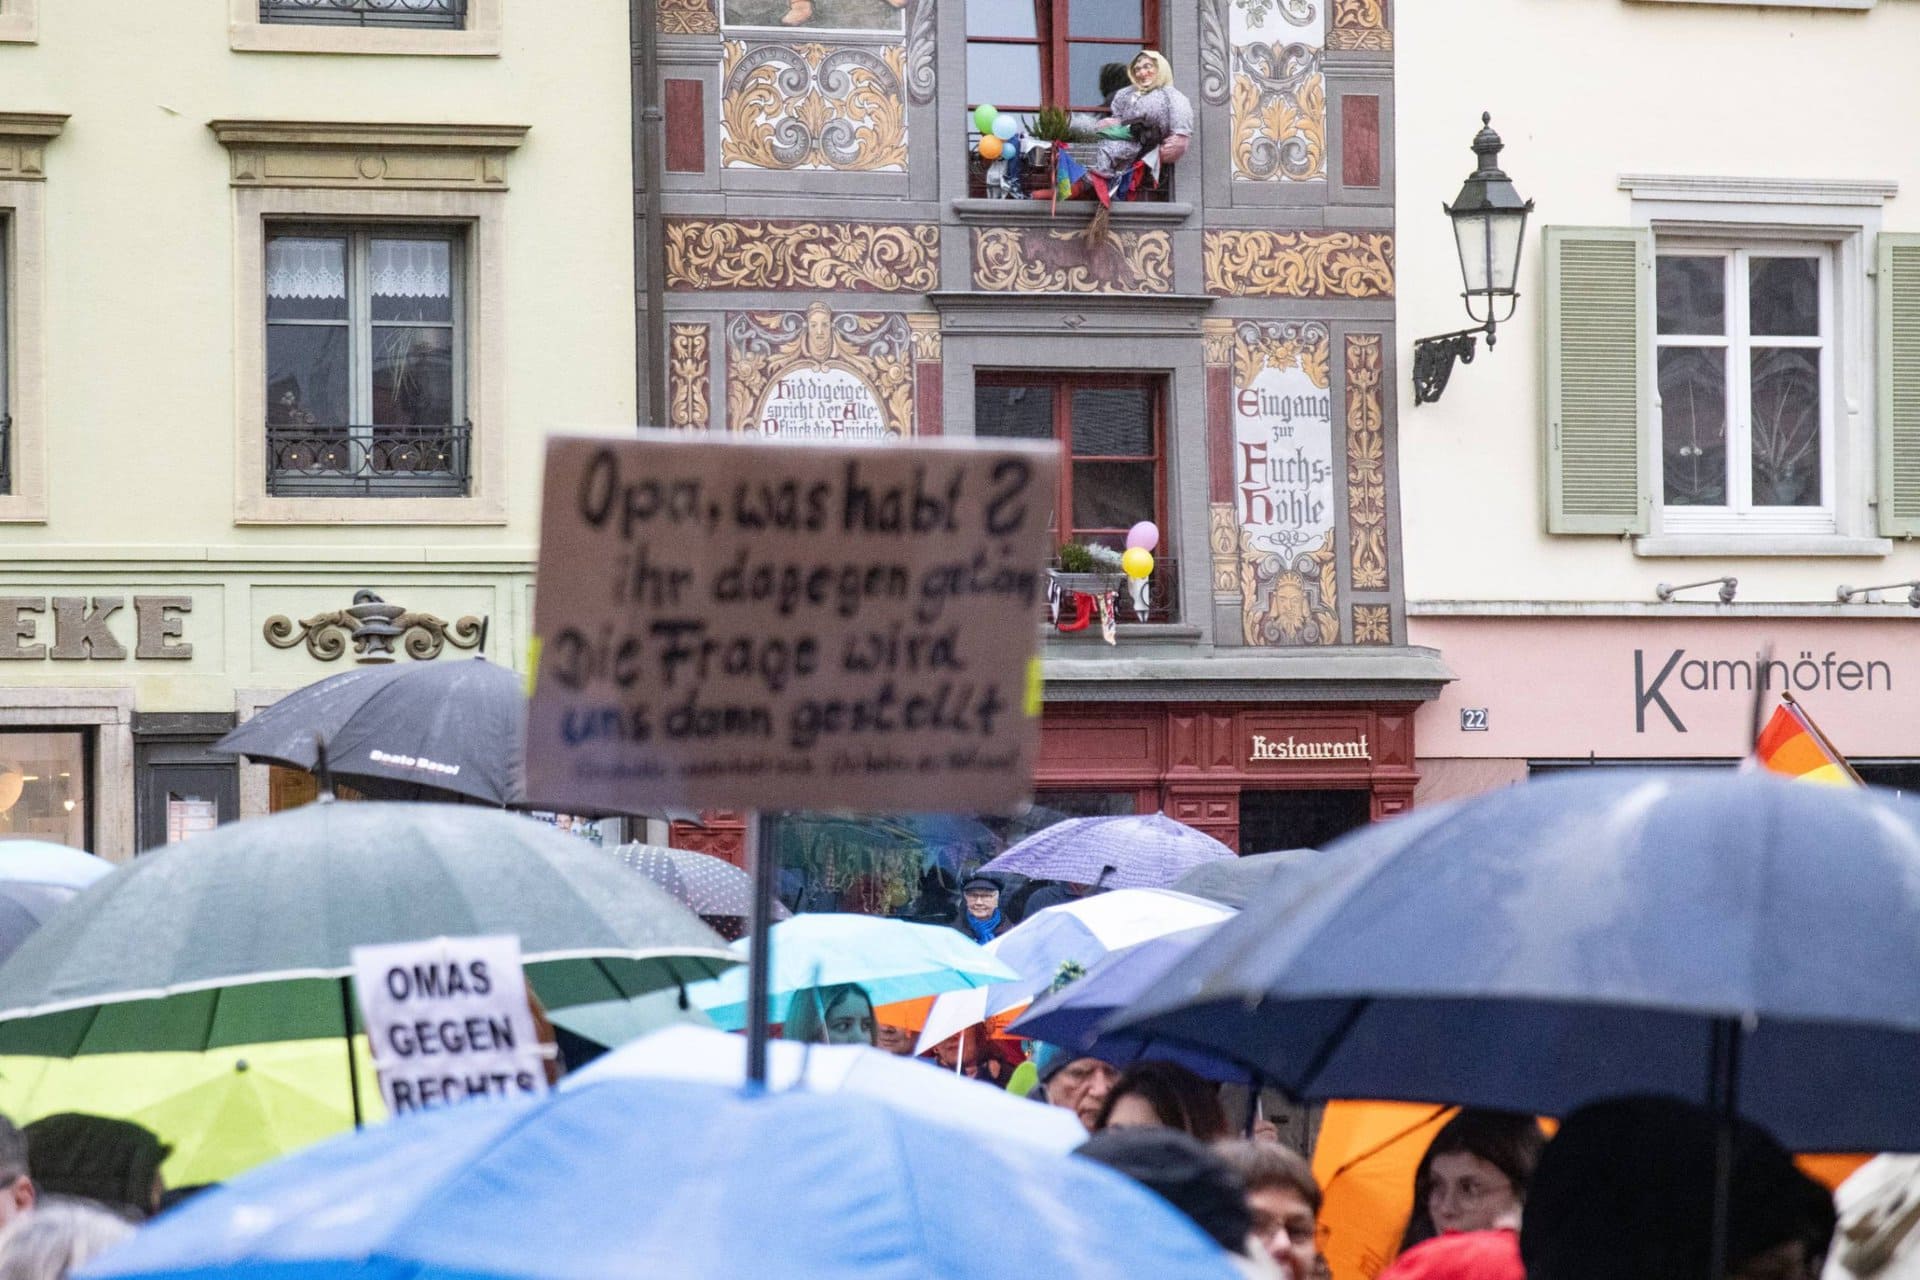 Hiddigeigei
spricht der Alte:
Pflück die Früchte
Eingang
zur
Fuchs=
höhle
Opa, was habt
ihr dagegen getan?
Die Frage wird
uns dann gestellt
EKE
Kaminöfen
22
Restaurant
OMAS
GEGEN
RECHTS